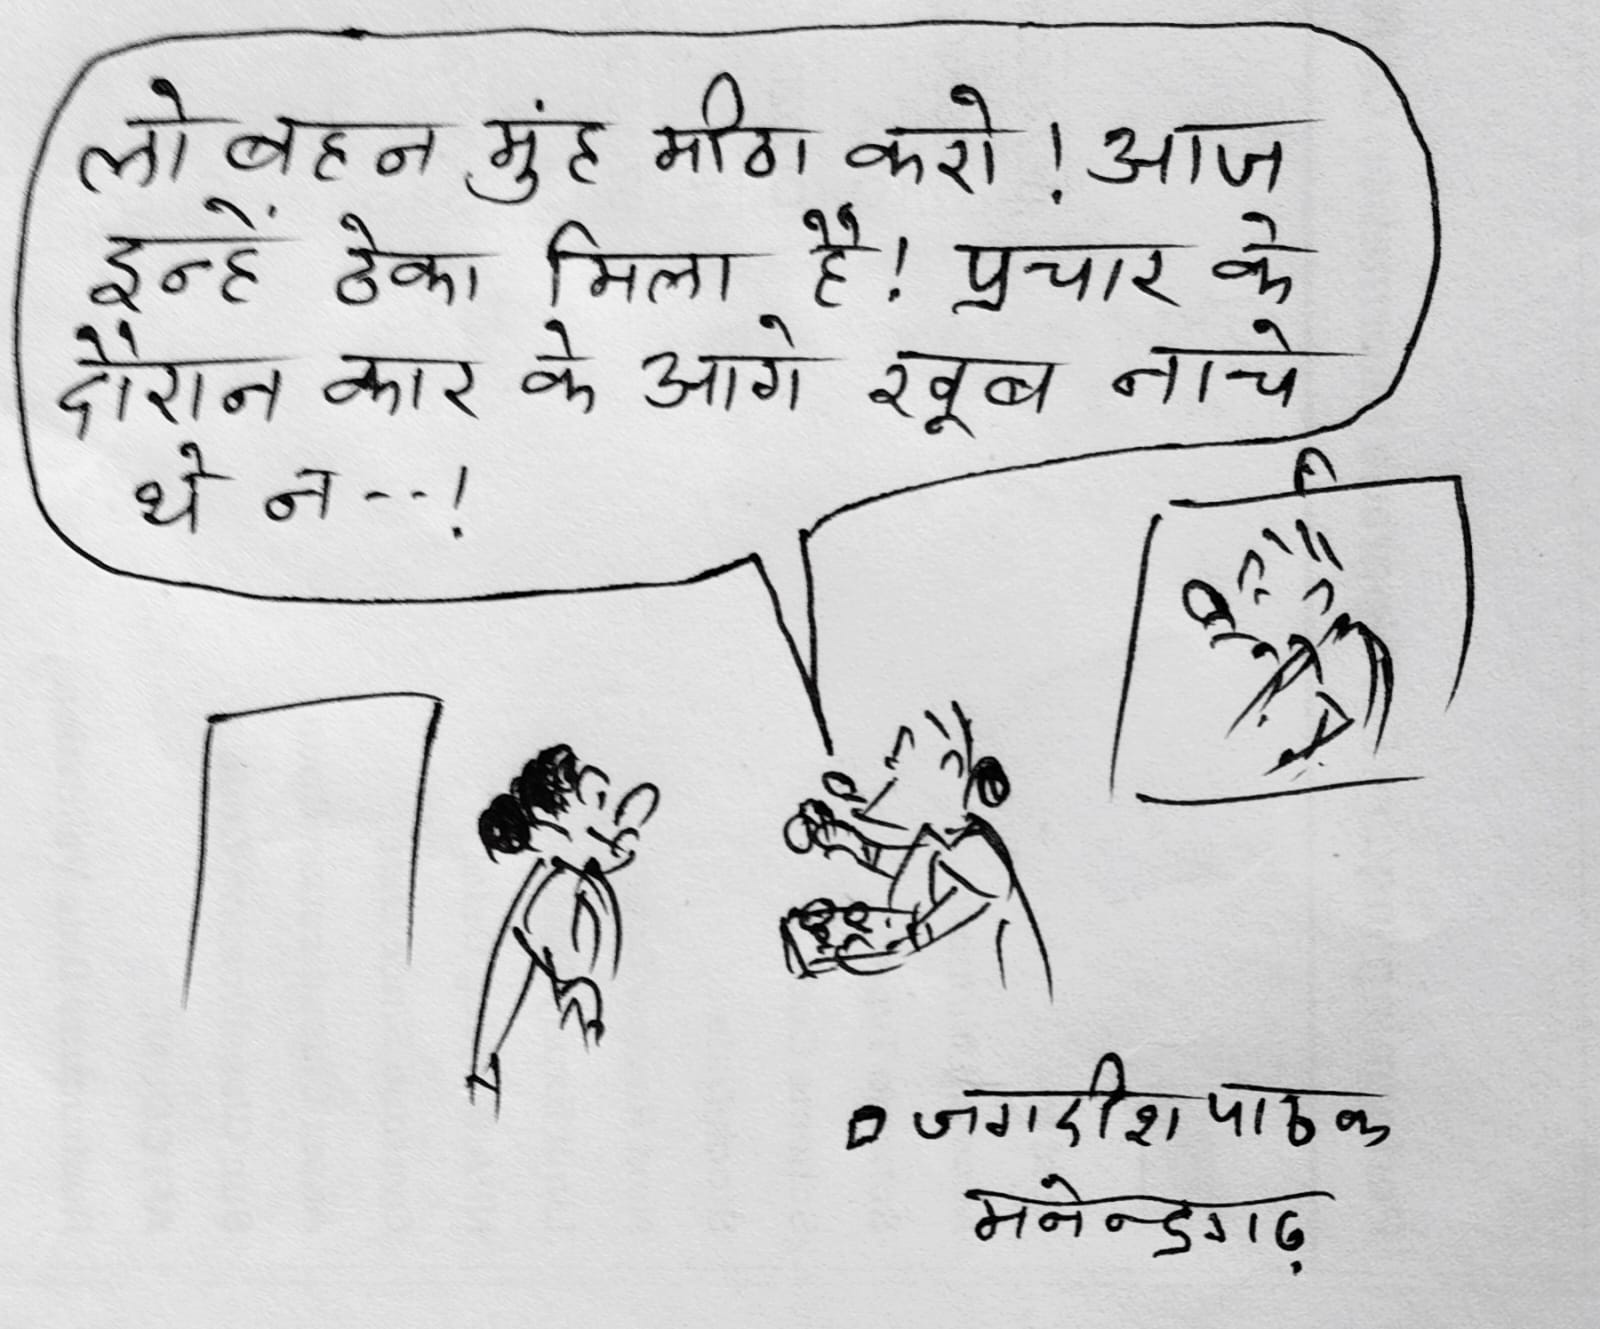 लो बहन मुंह मीठा करो! आज
इन्हें ठेका मिला है! प्रचार के
दौरान कार के आगे खूब नाचे
थे न---!
जगदीश पाठक
मनेन्द्रगढ़